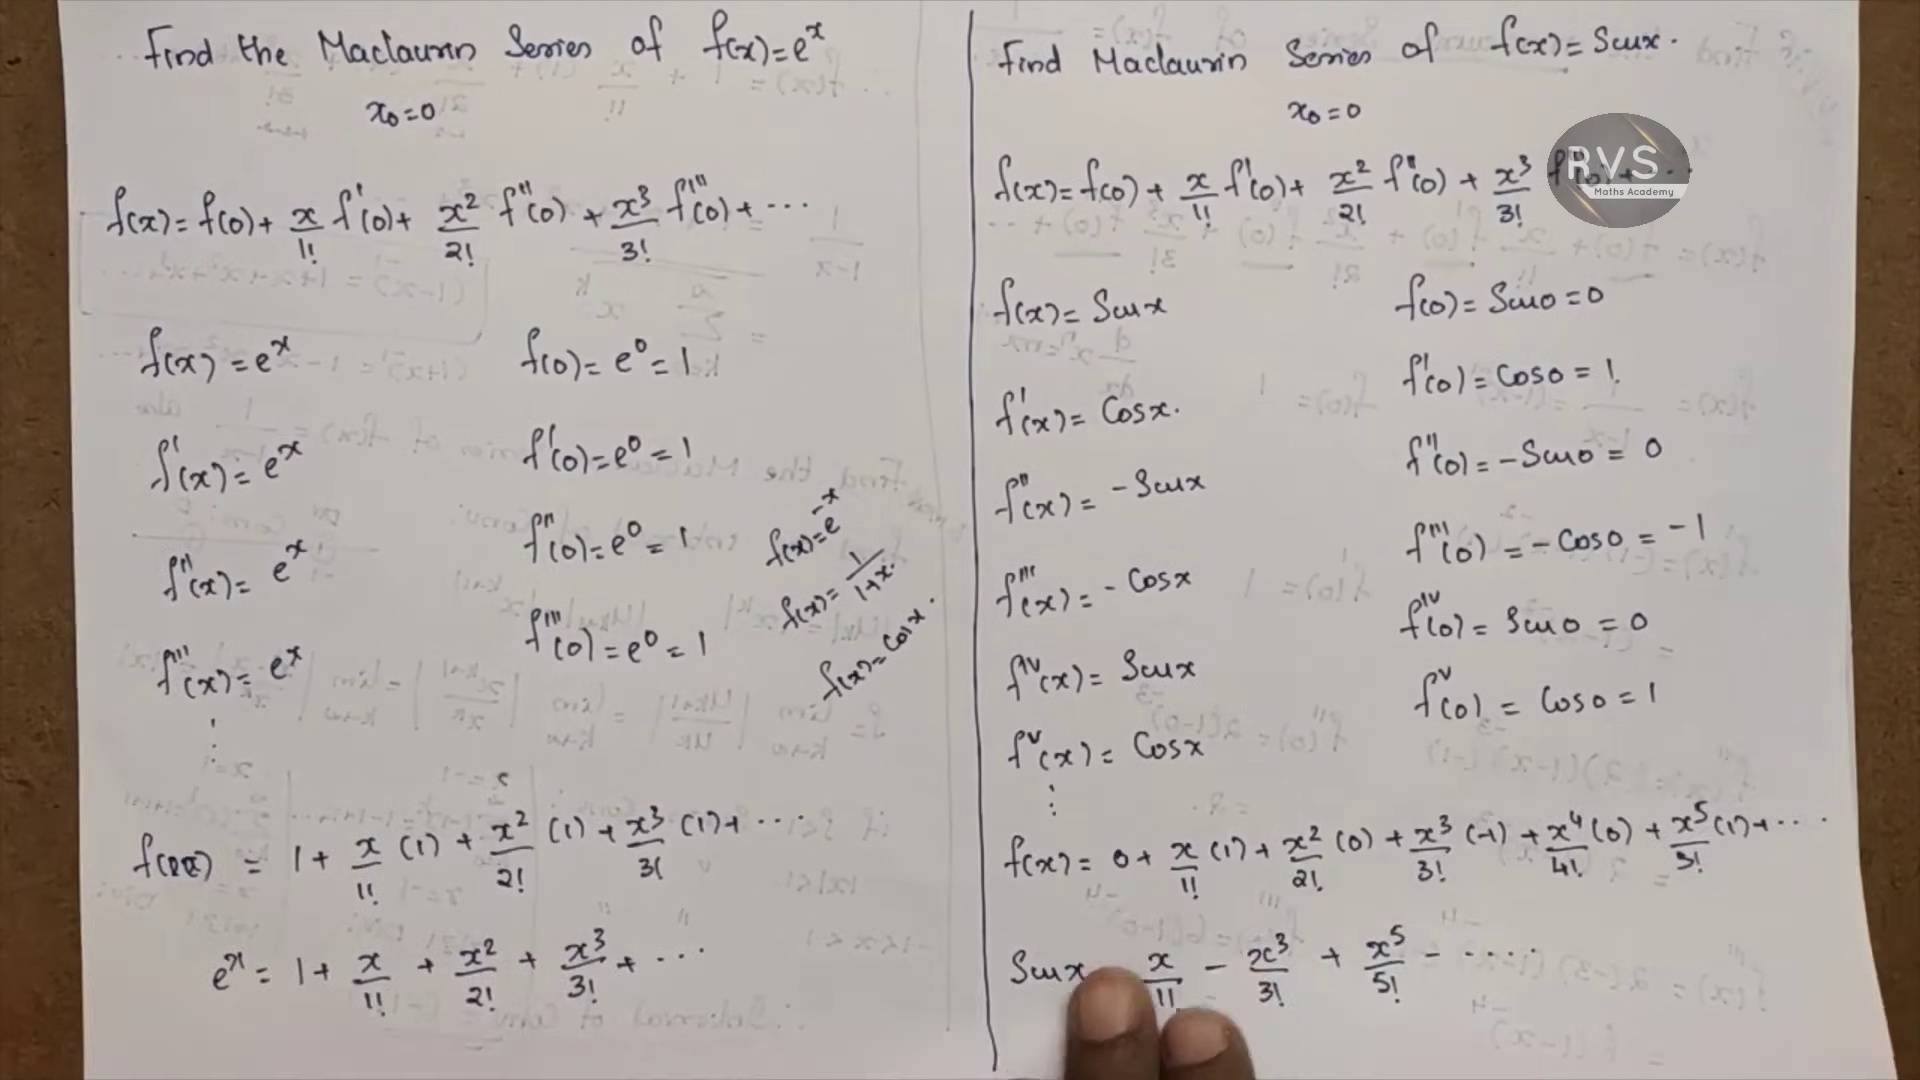 Find the Maclaurin Series of f(x)=e^x
x₀=0
f(x)= f(0)+ x/1! f'(0)+ x²/2! f''(0) + x³/3! f'''(0)+ ···
f(x) = e^x f(0)= e⁰= 1
f'(x)= e^x f'(0)=e⁰ = 1
f''(x)= e^x f''(0)=e⁰= 1
f'''(x)= e^x f'''(0)=e⁰= 1
f(x)=e^-x
f(x)= 1/1+x.
f(x)=cosx.
= 1+ x/1! (1) + x²/2! (1) + x³/3! (1)+ ···
e^x = 1+ x/1! + x²/2! + x³/3! + ···
Find Maclaurin Series of f(x)= Sinx.
x₀=0
f(x)= f(0) + x/1! f'(0)+ x²/2! f''(0) + x³/3!
RVS
Maths Academy
f(x)= Sinx f(0)= Sin0=0
f'(x)= Cosx. f'(0)= Cos0 = 1.
f''(x)= -Sinx f''(0)= -Sin0= 0
f'''(x)= - Cosx f'''(0) = - Cos0 = -1
f^IV(x)= Sinx f^IV(0)= Sin0 = 0
f^V(x)= Cosx f^V(0) = Cos0 = 1
f(x)= 0+ x/1! (1)+ x²/2! (0) + x³/3! (-1) + x⁴/4! (0) + x⁵/5! (1)+ ···
Sinx x/1! - x³/3! + x⁵/5! - ····